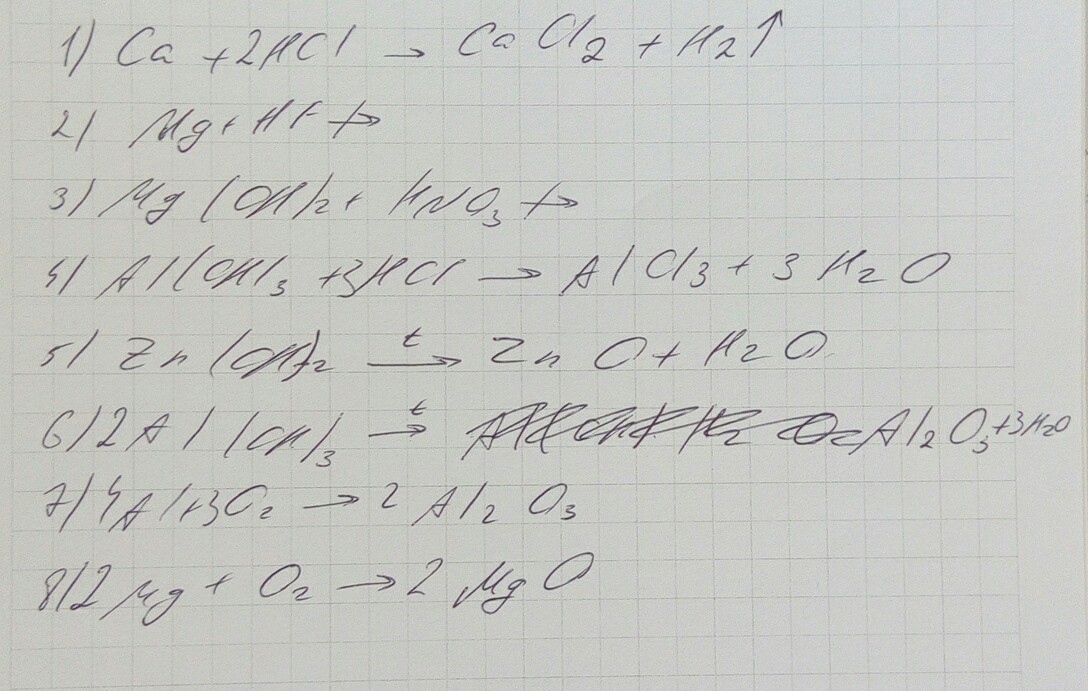 1) Ca + 2HCl → CaCl2 + H2↑
2) Mg + HF ↛
3) Mg(OH)2 + HNO3 ↛
4) Al(OH)3 + 3HCl → AlCl3 + 3H2O
5) Zn(OH)2 t→ ZnO + H2O
6) 2Al(OH)3 t→ Al2O3 + 3H2O
7) 4Al + 3O2 → 2Al2O3
8) 2Mg + O2 → 2MgO